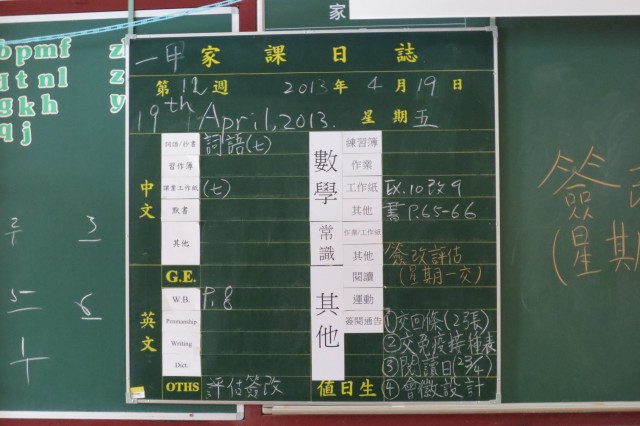 家
bpmf
qtnl
gkh
qj
z
z
y
一甲 家課日誌
第12週 2013年4月19日
19th April, 2013. 星期五
中文
詞語/抄書 詞語(七)
習作簿
課業工作紙 (七)
默書
其他
G.E.
英文
W.B. P.8
Penmanship
Writing
Dict.
OTHS 評估簽改
數學
練習簿
作業
工作紙 Ex.10改9
其他 書P.65-66
常識
作業/工作紙
其他 簽改評估
(星期一交)
其他
閱讀
運動
簽閱通告 ①交回條(2張)
②交免疫接種表
③閱讀日(23/4)
④會徽設計
值日生
3
5
6
簽改
(星期